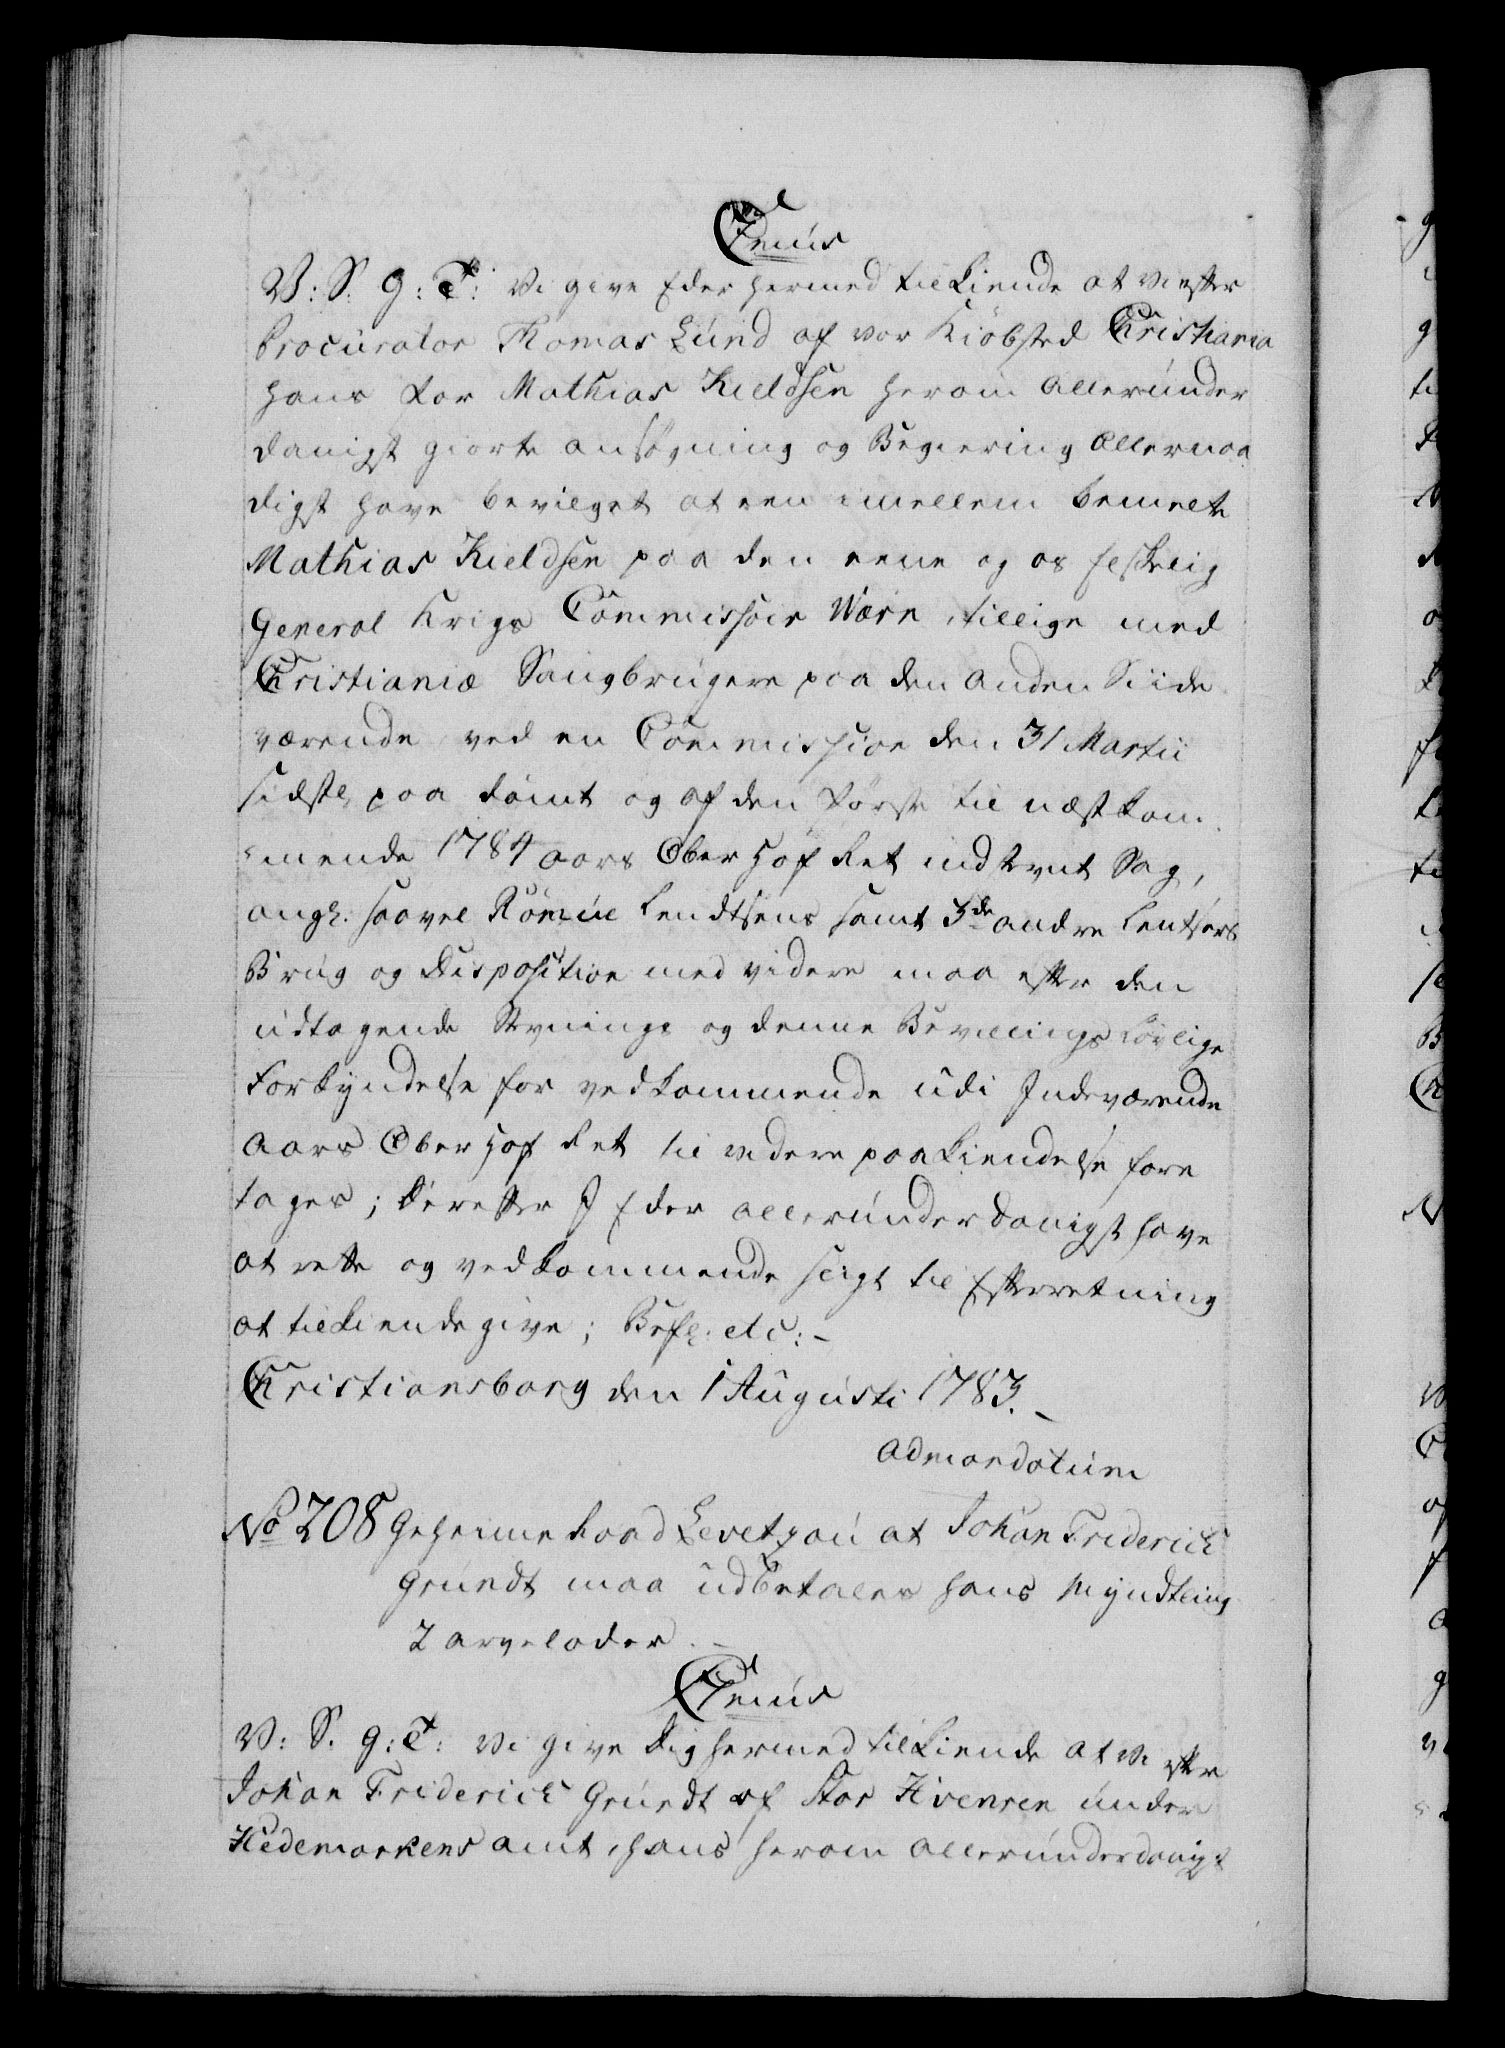 C7mus
V: S: G: T: Vi give Eder hermed tilkiende at Vi efter
Procurator Thomas Lund af vor Kiöbsted Christiania
hans for Mathias Kieldsen herom allerunder
danigst giorte ansøgning og Begiering allernaa
digst have bevilget at een imellem bemelte
Mathias Kieldsen paa den eene og os Elskelig
General Krigs Commissair Wærn tillige med
Christianiæ Saugbrugere paa den anden Siide
værende ved en Commission den 31 Martii
sidstl. paa dømt og af den første til næstkom
mende 1784 aars Ober Hof Ret indstevnt Sag,
angl. saavel Rømùe Lendtsens samt 3de andre Lentsers
Brug og Disposition med videre maa efter den
udtagende Stevnings og denne Bevillings Lovlige
Forkyndelse for vedkommende udi Indeværende
aars Ober Hof Ret til videre paakiendelse fore
tages; Derefter I Eder allerunderdanigst have
at rette og vedkommende sligt til Efterretning
at tilkiende give; Befl: etc:-
Christiansborg den 1 Augusti 1783.-
Admandatum
No 208 Geheime Raad Levetzau at Johan Friderich
Grundt maa udbetales hans Myndtling
2 arvelodder.-
C7mus
V: S. G: T: Vi give Dig hermed tilkiende at Vi efter
Johan Friderich Grundt af Stor Hvensen under
Hedemarkens amt, hans herom allerunderdanigst